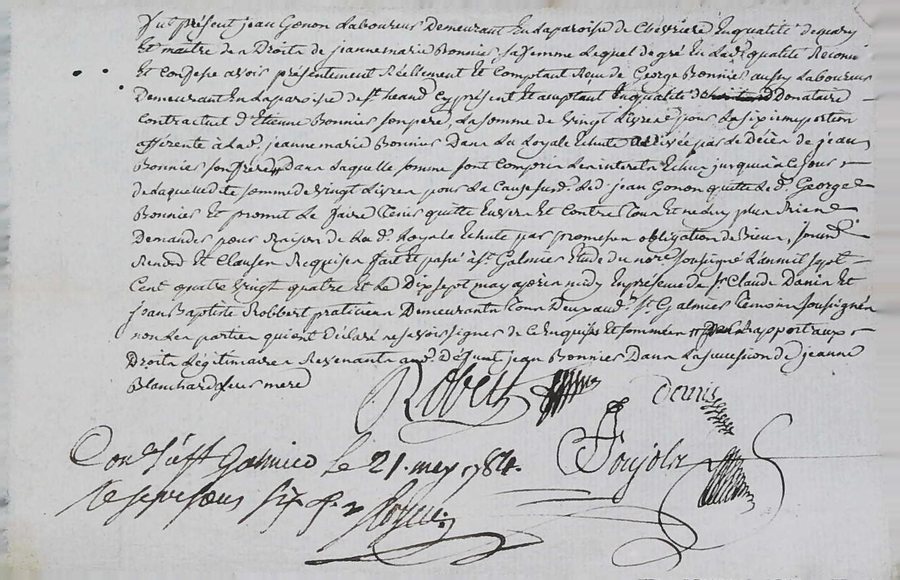 fut présent jean Gonon Laboureur Demeurant En Laparoise de Chevriere Enqualité de mary
Et maitre des Droits de jeanne marie Bonnier sa femme Lequel de gré En Lad. qualité Reconu
Et Confesse avoir présentement Réellement Et Comptant Receu de George Bonnier aussy Laboureur
Demeurant En Laparoise de st. heand Cy présent Et acceptant Enqualité Donataire
Contractuel d'Etienne Bonnier son pere, La somme de Vingt Livres pour La sixieme portion
afférente à Lad. jeanne marie Bonnier Dans La Loyale Echute arrivée par de Décès de jean
Bonnier son frere Dans Laquelle somme sont Compris Les interets Echus jusqu'à Ce jour
De Laquelle dite somme de Vingt Livres pour La Cause susd. Led. jean Gonon quitte Le d. George
Bonnier Et promet Le faire Tenir quitte Envers Et Contre Tous Et ne Luy plus Rien
Demander pour Raison de La d. Loyale Echute par promesses obligation de Biens, soumis.
Renons Et Clauses Requises fait Et passé à st. Galmier Etude du nore. soussigné L'an mil sept
Cent quatre Vingt quatre Et Le Dix sept may après midy En présence de sr. Claude Denis Et
jean Baptiste Robbert praticien Demeurants Tous Deux aud. st. Galmier Temoins soussignés
non Les parties qui ont Déclaré ne savoir signer de Ce Enquises Et sommées par Rapport aux
Droits Légitimaires Revenants aud. Défunt jean Bonnier Dans La succession de jeanne
Blanchard Leur mere
Robert Denis
Poujola
Con. à st Galmier le 21. may 1784.